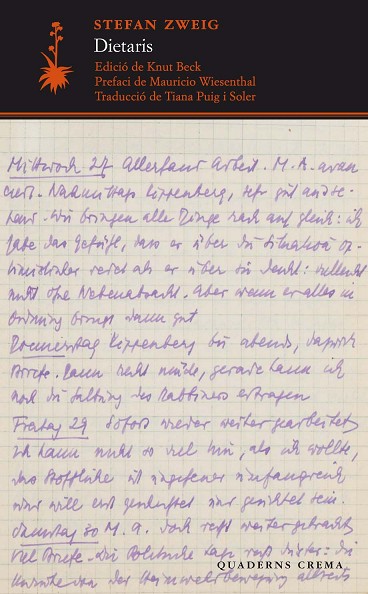 STEFAN ZWEIG
Dietaris
Edició de Knut Beck
Prefaci de Mauricio Wiesenthal
Traducció de Tiana Puig i Soler
Mittwoch 27 Allerhand Arbeit. M. A.
Nachmittags Kippenberg, sehr gut
Wir bringen alle Dinge rasch auf gleich: ich
habe das Gefühl, dass er über die Situation op-
timistischer redet als er über sie denkt: vielleicht
nicht ohne Nebenabsicht. Aber wenn er alles in
Ordnung bringt dann gut
Donnerstag Kippenberg bis abends, dazwischen
Briefe. Dann recht müde, gerade kann ich
noch die des Rabbiners ertragen
Freitag 29 Sofort wieder weiter gearbeitet
Ich kann nicht so viel tun, als ich wollte,
das Stoffliche ist ungeheuer umfangreich
und will erst und gesichtet sein.
Samstag 30 M. A. doch recht weitergebracht
Viel Briefe. Die politische Lage sehr düster: die
von der Heimwehrbewegung
QUADERNS CREMA